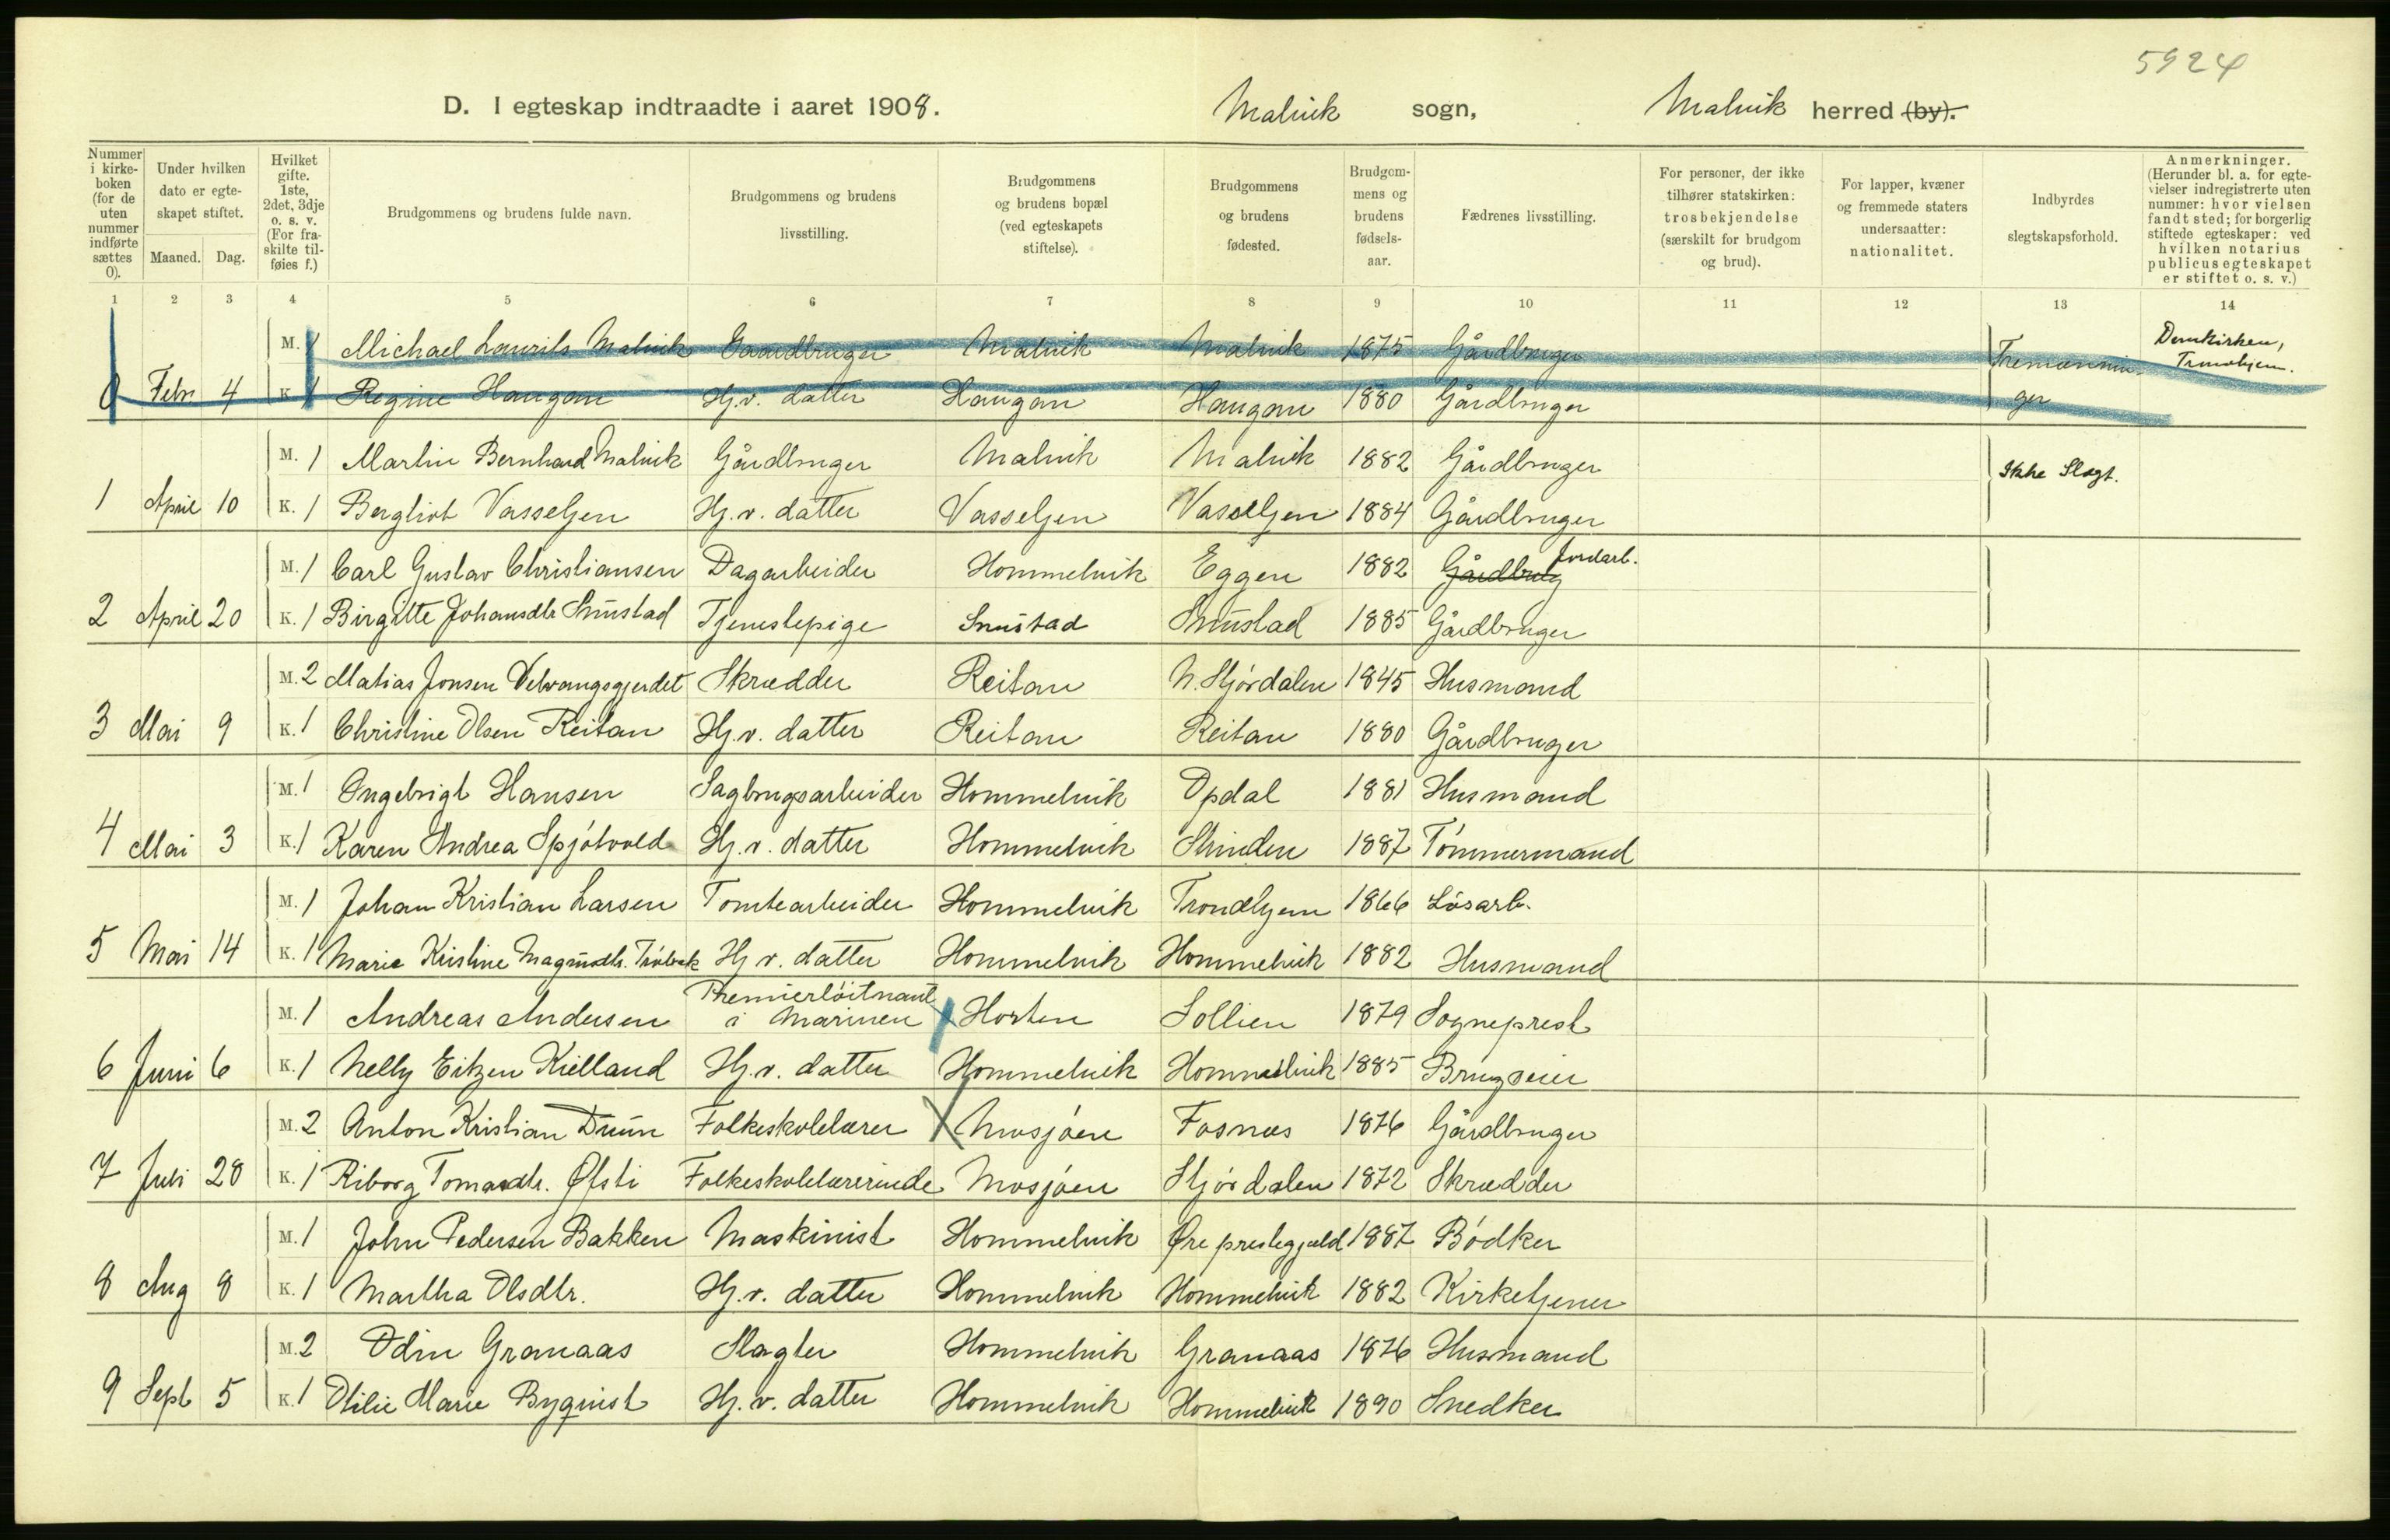 5924
D. I egteskap indtraadte i aaret 1908. Malvik sogn, Malvik herred (by).
Nummer i kirkeboken (for de uten nummer indførte sættes 0).
Under hvilken dato er egteskapet stiftet.
Maaned. Dag.
Hvilket gifte. 1ste, 2det, 3dje o. s. v. (For fraskilte tilføies f.)
Brudgommens og brudens fulde navn.
Brudgommens og brudens livsstilling.
Brudgommens og brudens bopæl (ved egteskapets stiftelse).
Brudgommens og brudens fødested.
Brudgommens og brudens fødselsaar.
Fædrenes livsstilling.
For personer, der ikke tilhører statskirken: trosbekjendelse (særskilt for brudgom og brud).
For lapper, kvæner og fremmede staters undersaatter: nationalitet.
Indbyrdes slegtskapsforhold.
Anmerkninger. (Herunder bl. a. for egtevielser indregistrerte uten nummer: hvor vielsen fandt sted; for borgerlig stiftede egteskaper: ved hvilken notarius publicus egteskapet er stiftet o. s. v.)
1 2 3 4 5 6 7 8 9 10 11 12 13 14
M. 1 Michael Laurits Malvik Gaardbruger Malvik Malvik 1875 Gårdbruger Tremænnin- Domkirken, Trondhjem.
0 Febr 4 K. 1 Regine Haugan Hj.v. datter Haugan Haugan 1880 Gårdbruger ger
M. 1 Martin Bernhard Malvik Gårdbruger Malvik Malvik 1882 Gårdbruger Ikke Slegt.
1 April 10 K. 1 Bergliot Vasseljen Hj.v. datter Vasseljen Vasseljen 1884 Gårdbruger
M. 1 Carl Gustav Christiansen Dagarbeider Hommelvik Eggen 1882 Gårdbrug Jordarb.
2 April 20 K. 1 Birgitte Johansdtr Snustad Tjenestepige Snustad Snustad 1885 Gårdbruger
M. 2 Matias Jonsen Velvangsgjerdet Skrædder Reitan N. Stjørdalen 1845 Husmand
3 Mai 9 K. 1 Christine Olsen Reitan Hj.v. datter Reitan Reitan 1880 Gårdbruger
M. 1 Ingebrigt Hansen Sagbrugsarbeider Hommelvik Opdal 1881 Husmand
4 Mai 3 K. 1 Karen Andrea Spjøtvold Hj.v. datter Hommelvik Strinden 1887 Tømmermand
M. 1 Johan Kristian Larsen Tomtearbeider Hommelvik Trondhjem 1866 Løsarb.
5 Mai 14 K. 1 Marie Kristine Magnusdtr. Hj.v. datter Hommelvik Hommelvik 1882 Husmand
M. 1 Andreas Andersen Premierløitnant i Marinen Horten Sollien 1879 Sogneprest
6 Juni 6 K. 1 Nelly Eitzen Kielland Hj.v. datter Hommelvik Hommelvik 1885 Brugseier
M. 2 Anton Kristian Duun Folkeskolelærer Mosjøen Fosnæs 1876 Gårdbruger
7 Juli 28 K. 1 Riborg Tomasdtr. Øfsti Folkeskolelærerinde Mosjøen Stjørdalen 1872 Skrædder
M. 1 John Pedersen Bakken Maskinist Hommelvik Øre prestegjæld 1887 Bødker
8 Aug 8 K. 1 Martha Olsdtr. Hj.v. datter Hommelvik Hommelvik 1882 Kirketjener
M. 2 Odin Granaas Slagter Hommelvik Granaas 1876 Husmand
9 Sept 5 K. 1 Otilie Marie Byquist Hj.v. datter Hommelvik Hommelvik 1890 Snedker